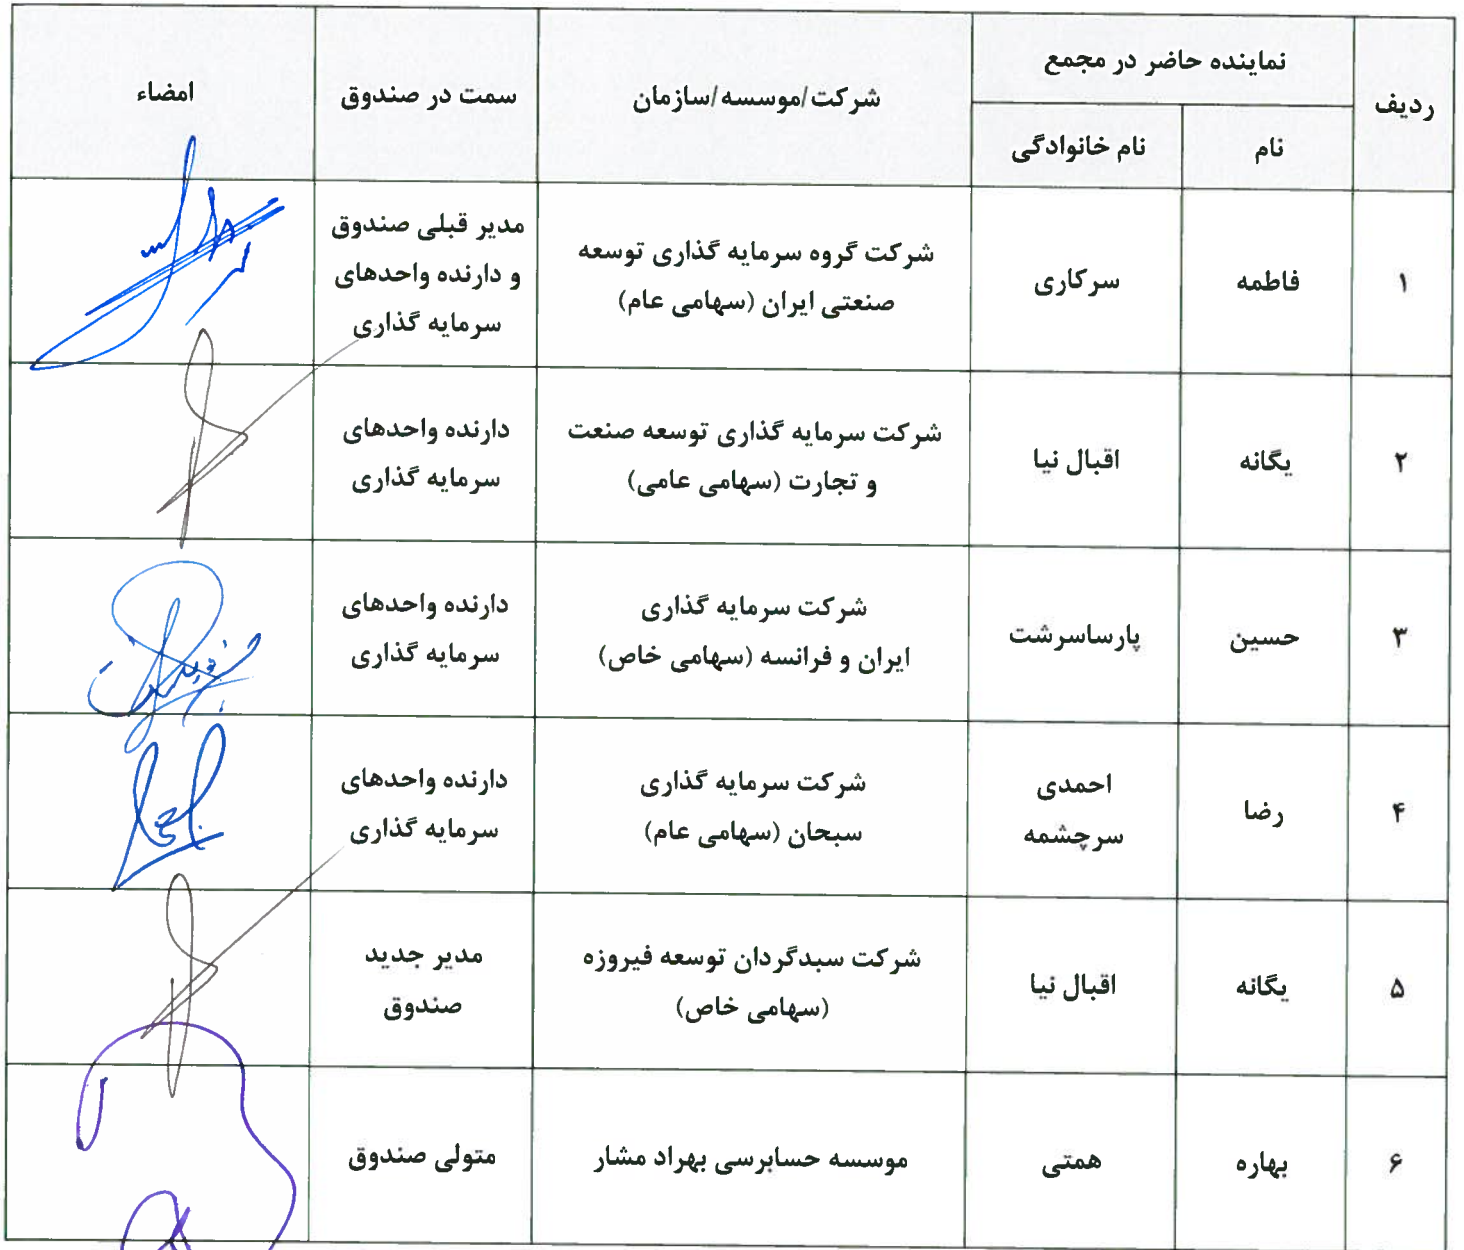 ردیف
نماینده حاضر در مجمع
شرکت/موسسه/سازمان
سمت در صندوق
امضاء
نام
نام خانوادگی
۱
فاطمه
سرکاری
شرکت گروه سرمایه گذاری توسعه
صنعتی ایران (سهامی عام)
مدیر قبلی صندوق
و دارنده واحدهای
سرمایه گذاری
۲
یگانه
اقبال نیا
شرکت سرمایه گذاری توسعه صنعت
و تجارت (سهامی عامی)
دارنده واحدهای
سرمایه گذاری
۳
حسین
پارساسرشت
شرکت سرمایه گذاری
ایران و فرانسه (سهامی خاص)
دارنده واحدهای
سرمایه گذاری
۴
رضا
احمدی
سرچشمه
شرکت سرمایه گذاری
سبحان (سهامی عام)
دارنده واحدهای
سرمایه گذاری
۵
یگانه
اقبال نیا
شرکت سبدگردان توسعه فیروزه
(سهامی خاص)
مدیر جدید
صندوق
۶
بهاره
همتی
موسسه حسابرسی بهراد مشار
متولی صندوق